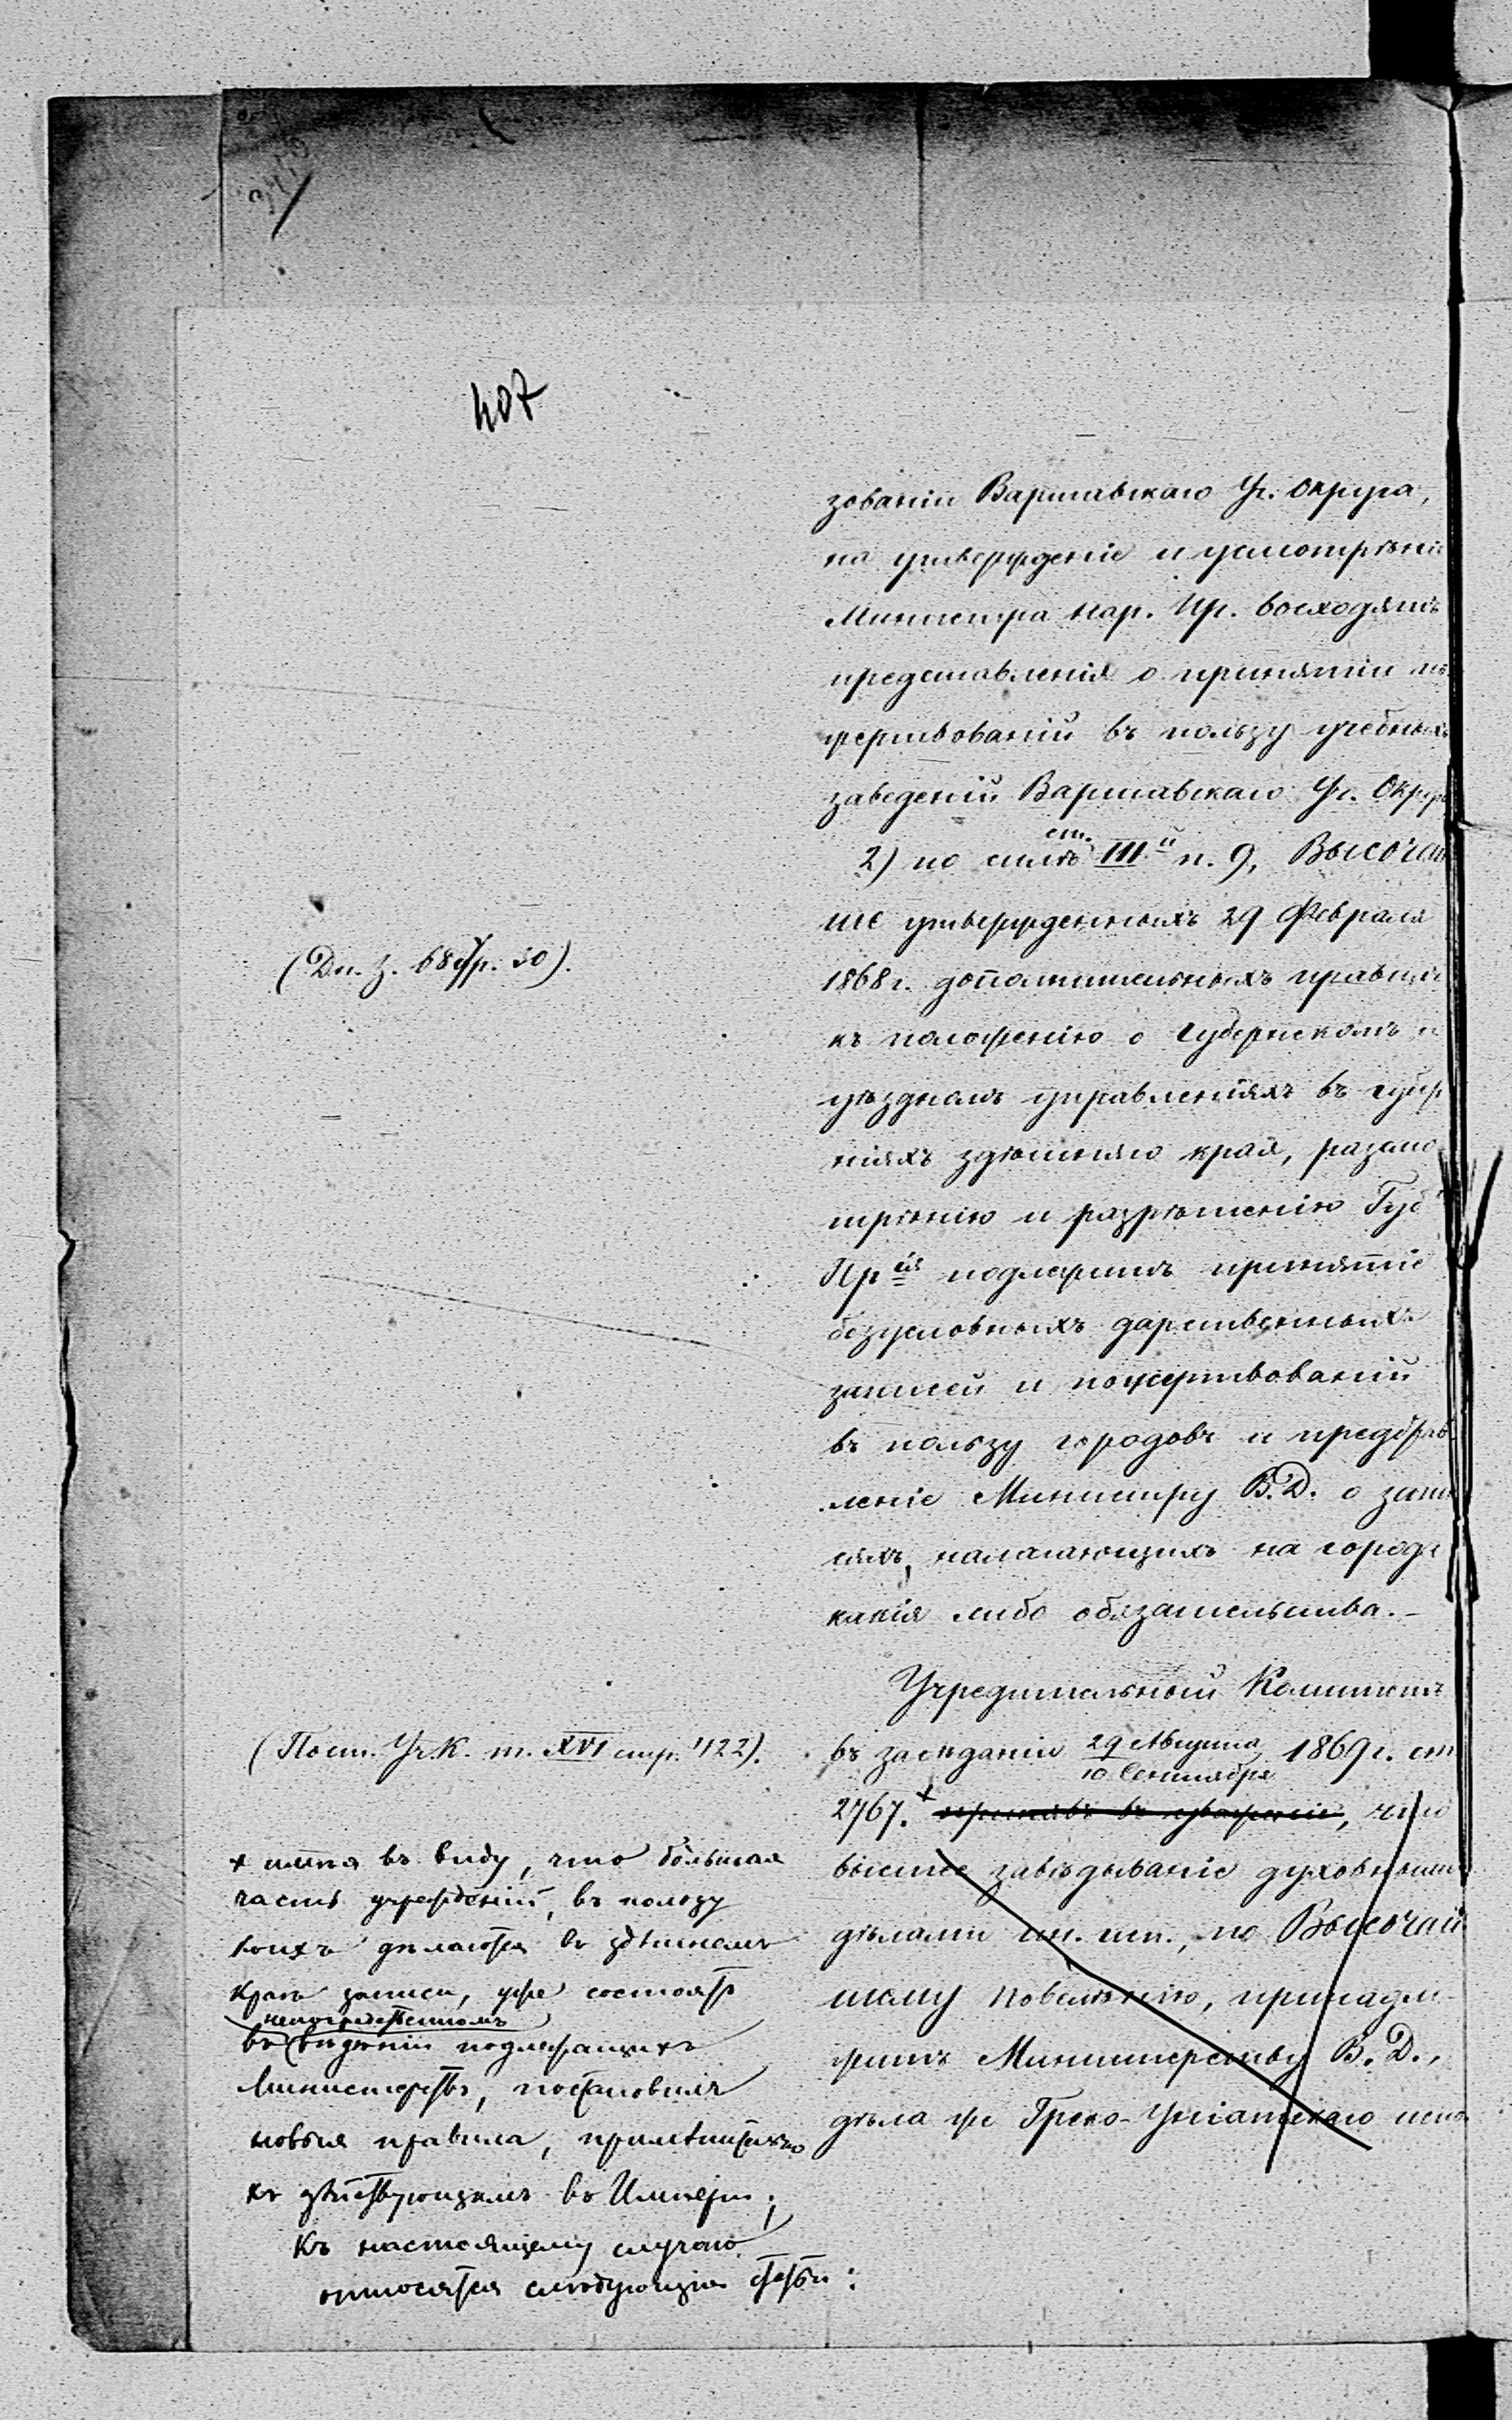 407
зованіи Варшавскаго Уч. Округа,
на утвержденіе и усмотрѣніе
Министра Нар. Пр. восходятъ
представленія о принятіи по-
жертвованій въ пользу учебныхъ
заведеній Варшавскаго Уч. Округ
2) по силѣ ст. III й п. 9, Высочай
ше утвержденныхъ 29 Февраля
(Дн. З. 68 стр. 30).
1868 г. дополнительныхъ правилъ
къ положенію о Губернскомъ и
уѣздномъ управленіяхъ въ губер
ніяхъ здѣшняго края, разсмо
трѣнію и разрѣшенію Губ
Пр ія подлежитъ принятіе
безусловныхъ дарственныхъ
записей и пожертвованій
въ пользу городовъ и представ
леніе Министру В.Д. о запи
сяхъ, налагающихъ на города
какія либо обязательства.-
Учредительный Комитетъ
(Пост. Уч.К. т. XVI стр. 422).
въ засѣданіи 29 Августа / 10 Сентября 1869 г. ст
2767. + принявъ въ уваженіе, что
высшее завѣдываніе духовными
дѣлами ин. исп., по Высочай
шему повелѣнію, принадле-
житъ Министерству В.Д.,
дѣла же Греко-Уніатскаго испо
+ имѣя въ виду, что большая
часть учрежденій, въ пользу
коихъ дѣлаются въ здѣшнемъ
краѣ записи, уже состоятъ
непосредственномъ
въ вѣдѣніи подлежащихъ
Министерствъ, постановилъ
новыя правила, примѣнительно
къ дѣйствующимъ въ Имперіи;
Къ настоящему случаю
относятся слѣдующія статьи: